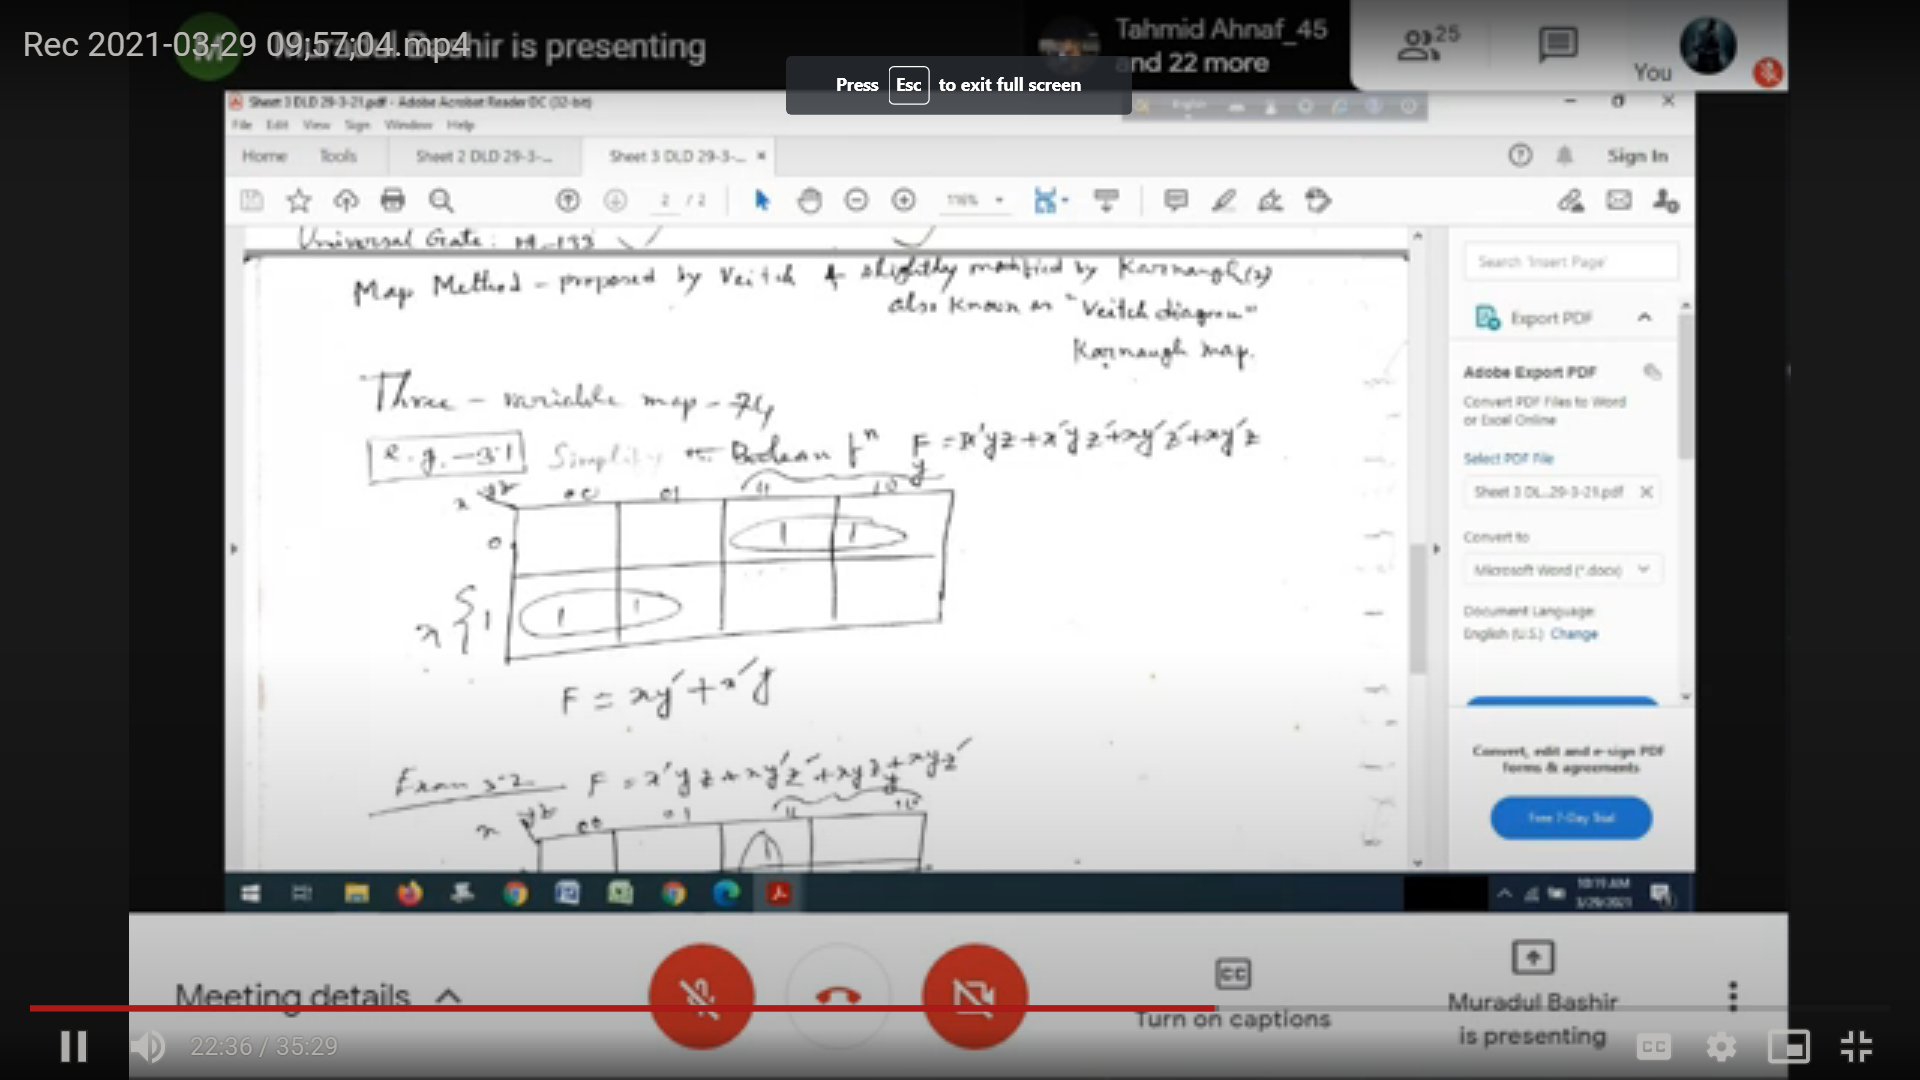 Rec 2021-03-29 09;57;04.mp4
Muradul Bashir is presenting
Tahmid Ahnaf_45
and 22 more
25
You
Press Esc to exit full screen
Sheet 3 DLD 29-3-21.pdf - Adobe Acrobat Reader DC (32-bit)
File Edit View Sign Window Help
Home Tools Sheet 2 DLD 29-3-... Sheet 3 DLD 29-3-... ×
Sign In
2 / 2
116%
Universal Gate:
Map Method - proposed by Veitch & slightly modified by Karnaugh
also known as "Veitch diagram"
Karnaugh map.
Three - variable map - 74
e.g. - 3.1 Simplify Boolean fn F = x'yz + x'yz' + xy'z' + xy'z
y
x yz 00 01 11 10
0 1 1
x { 1 1 1
F = xy' + x'y
Exam 3.2 F = x'yz + xy'z' + xyz + xyz'
y
x yz 00 01 11 10
1
Search 'Insert Page'
Export PDF
Adobe Export PDF
Convert PDF Files to Word
or Excel Online
Select PDF File
Sheet 3 DL...29-3-21.pdf ×
Convert to
Microsoft Word (*.docx)
Document Language:
English (U.S.) Change
Convert, edit and e-sign PDF
forms & agreements
Free 7-Day Trial
10:19 AM
3/29/2021
Meeting details
CC
Turn on captions
Muradul Bashir
is presenting
22:36 / 35:29
CC